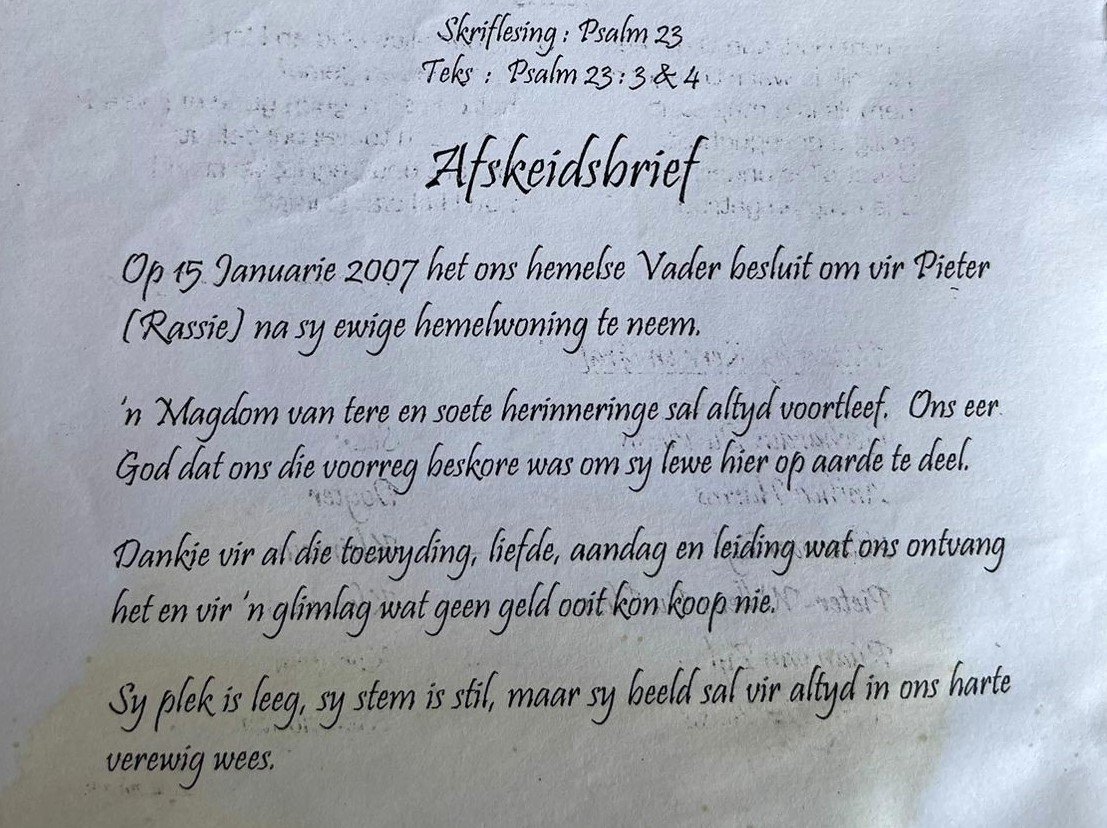 Skriflesing : Psalm 23
Teks : Psalm 23 : 3 & 4
Afskeidsbrief
Op 15 Januarie 2007 het ons hemelse Vader besluit om vir Pieter
(Rassie) na sy ewige hemelwoning te neem.
'n Magdom van tere en soete herinneringe sal altyd voortleef. Ons eer
God dat ons die voorreg beskore was om sy lewe hier op aarde te deel.
Dankie vir al die toewyding, liefde, aandag en leiding wat ons ontvang
het en vir 'n glimlag wat geen geld ooit kon koop nie.
Sy plek is leeg, sy stem is stil, maar sy beeld sal vir altyd in ons harte
verewig wees.